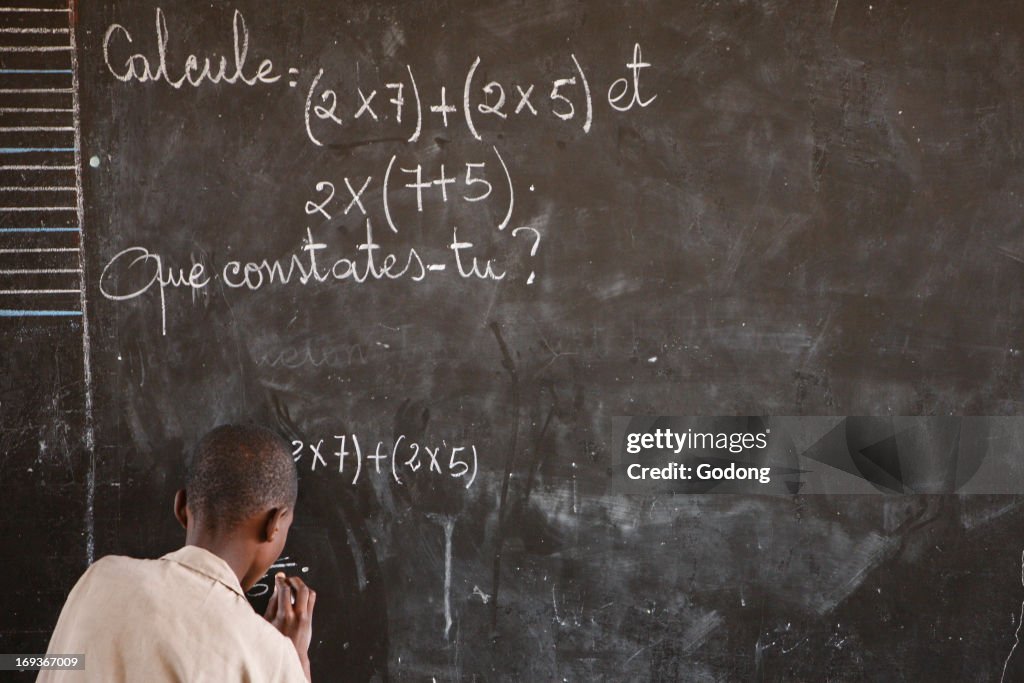 Calcule: (2×7)+(2×5) et
2×(7+5).
Que constates-tu ?
2×7)+(2×5)
gettyimages®
Credit: Godong
169367009